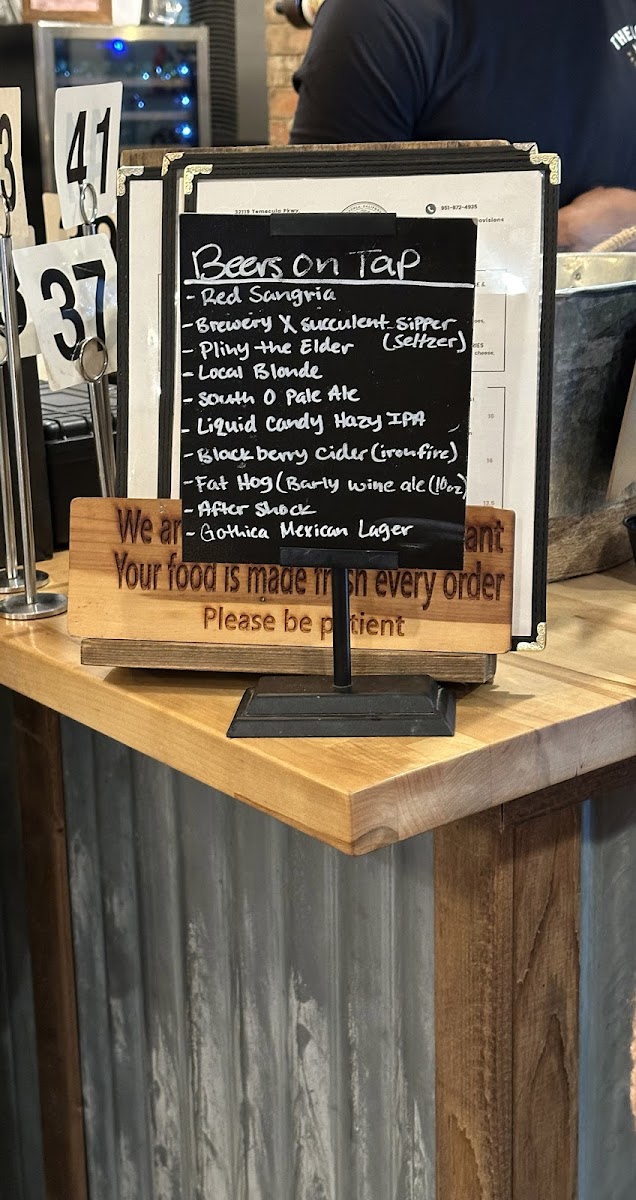 41
3
37
THE
32115 Temecula Pkwy,
951-972-4935
ovisions
Beers on Tap
- Red Sangria
- Brewery X succulent Sipper
(seltzer)
- Pliny the Elder
- Local Blonde
- South O Pale Ale
- Liquid Candy Hazy IPA
- Blackberry Cider (ironfire)
- Fat Hog (Barly wine ale (10oz)
- After Shock
- Gothica Mexican Lager
We ar ant
Your food is made fresh every order
Please be patient